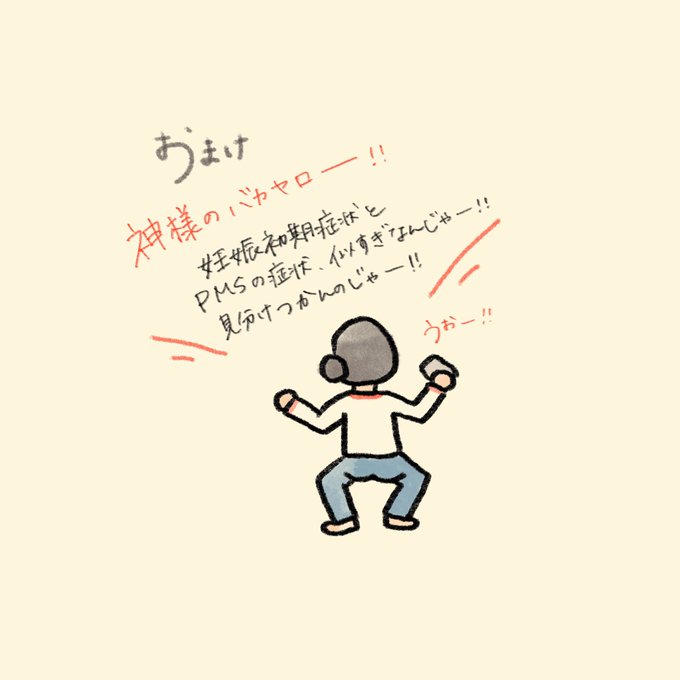 おまけ
神様のバカヤロー!!
妊娠初期症状と
PMSの症状、似すぎなんじゃー!!
見分けつかんのじゃー!!
うおー!!